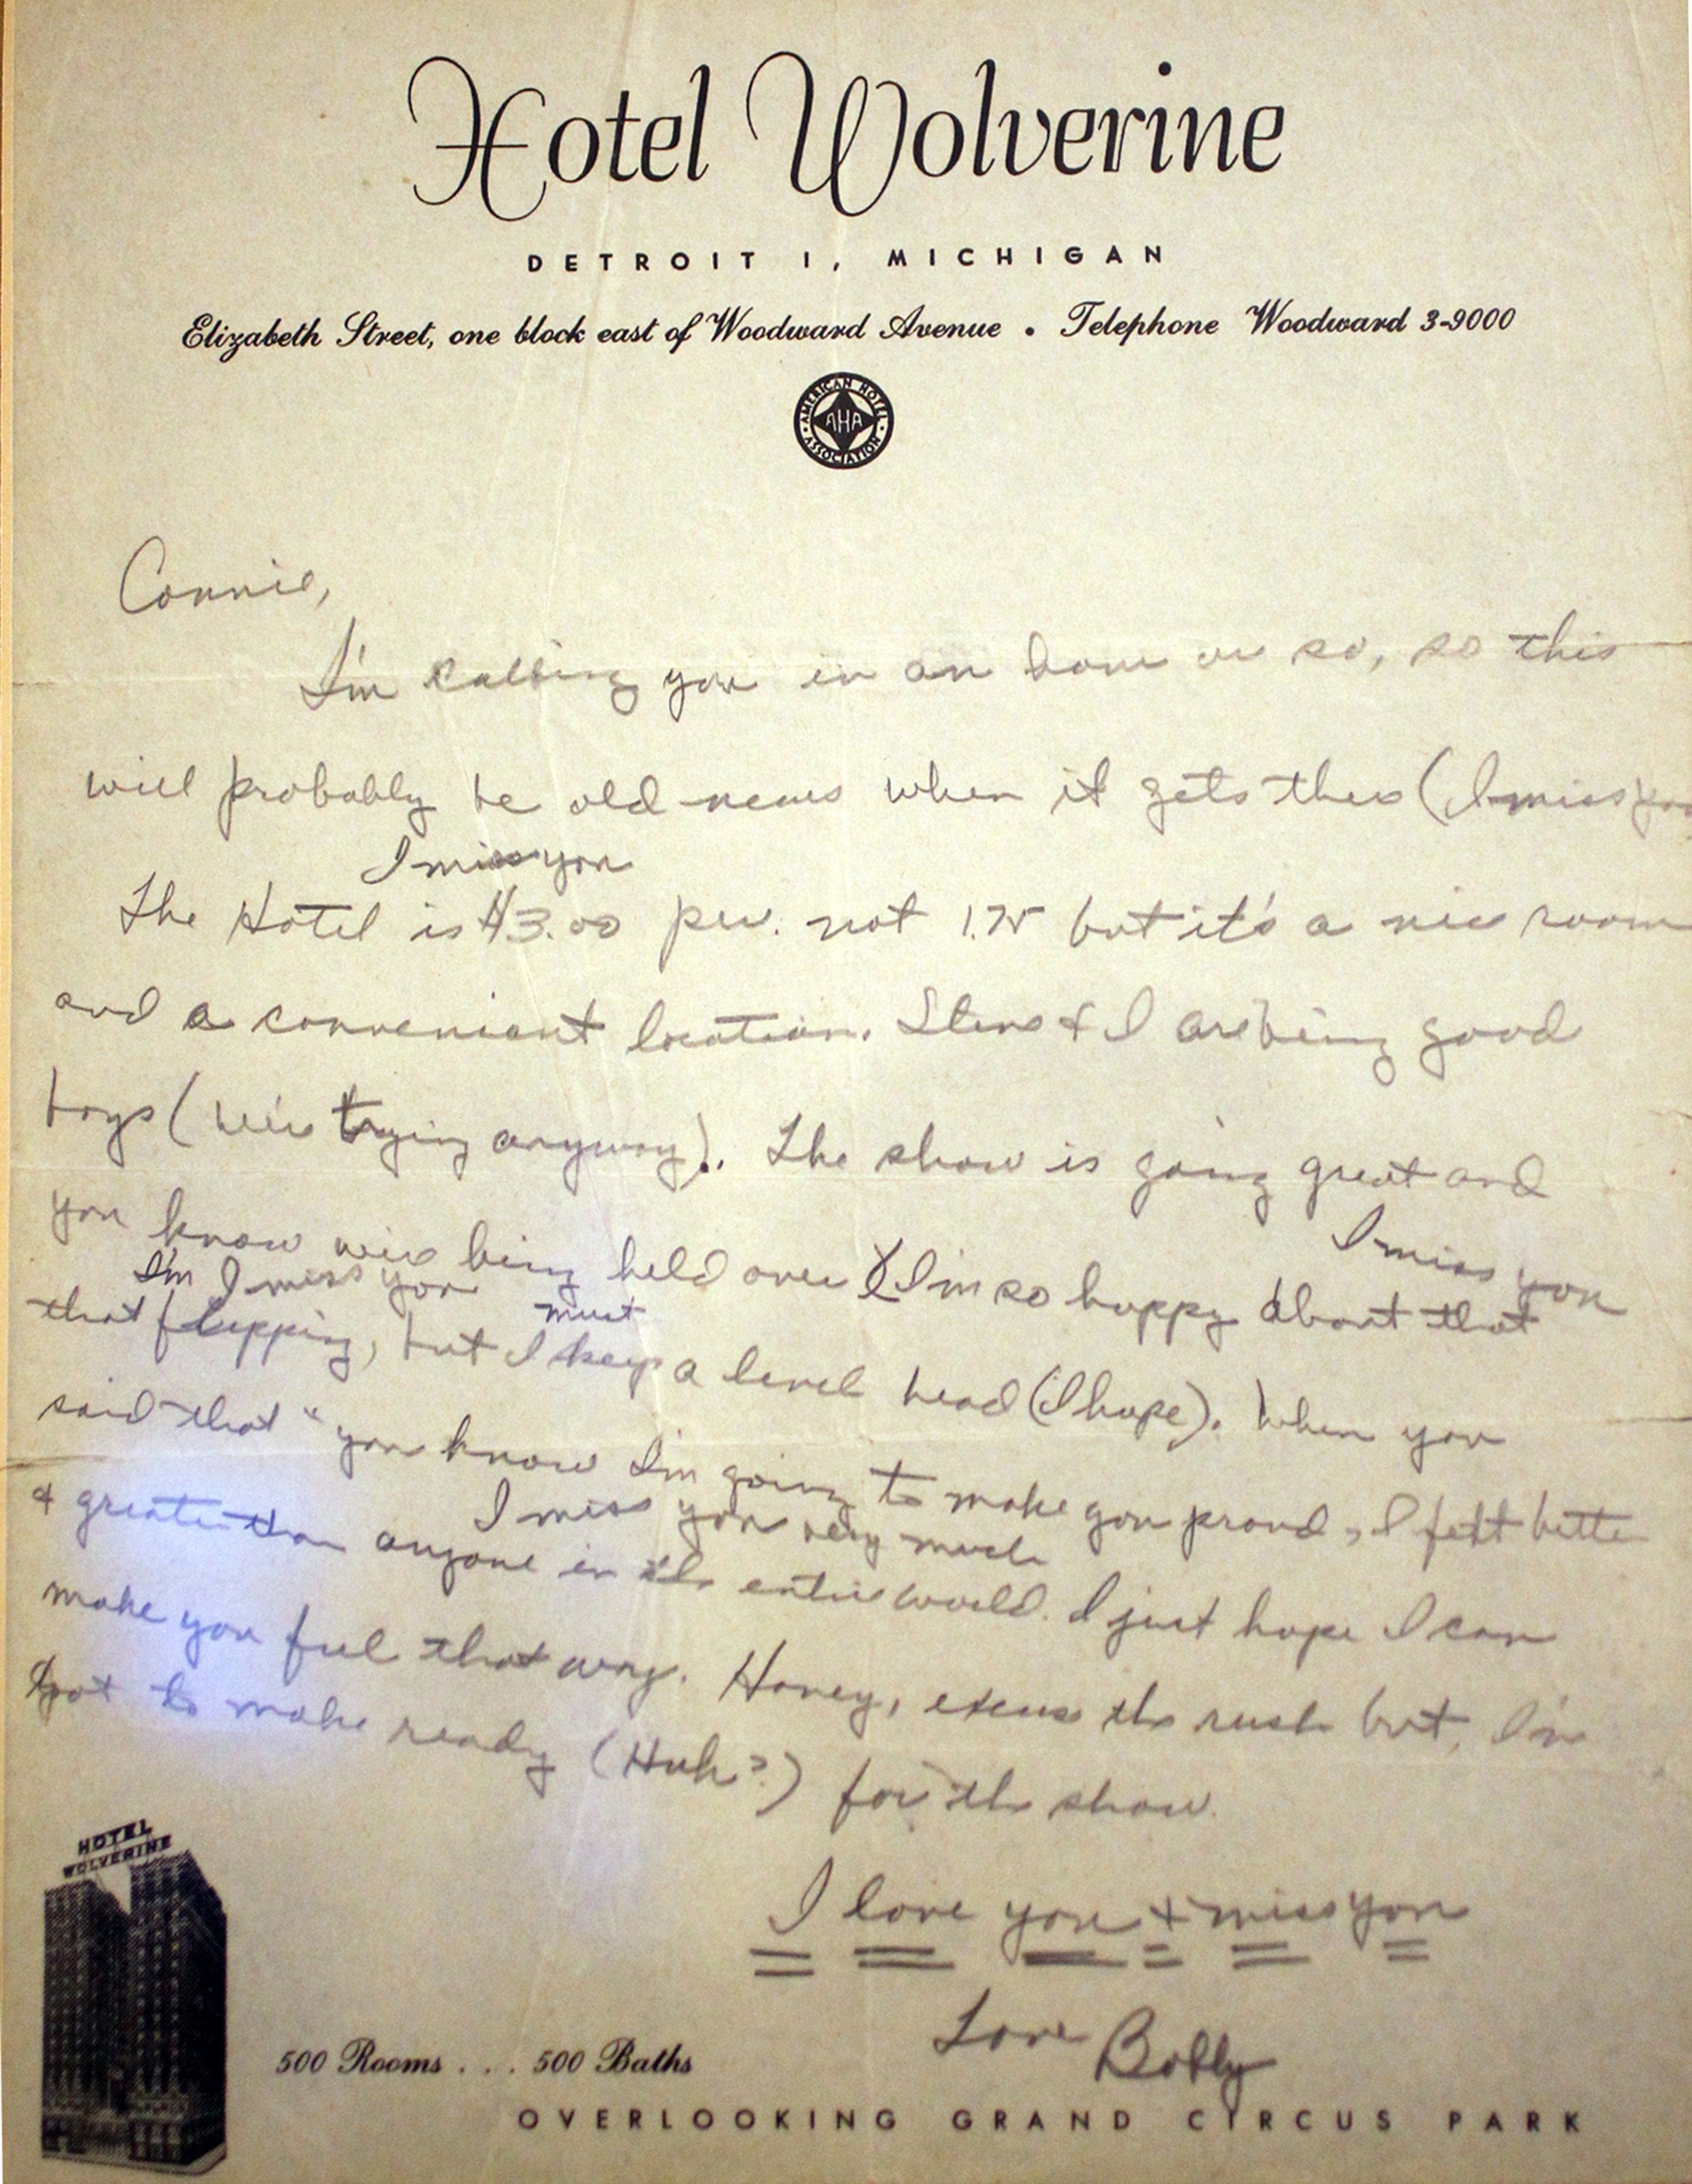 Hotel Wolverine
DETROIT 1, MICHIGAN
Elizabeth Street, one block east of Woodward Avenue • Telephone Woodward 3-9000
AMERICAN HOTEL ASSOCIATION
AHA
Connie,
I'm calling you in an hour or so, so this
will probably be old news when it gets there (I miss you
I miss you
The Hotel is $3.00 per. not 1.75 but it's a nice room
and a convenient location. Steve & I are being good
boys (we're trying anyway). The show is going great and
you know we're being held over I'm so happy about that
I miss you
I'm I miss you
that flipping, but I must keep a level head (I hope). When you
said that "you know I'm going to make you proud, I felt better
I miss you very much
& greater than anyone in the entire world. I just hope I can
make you feel that way. Honey, excuse the rush but, I've
got to make ready (Huh?) for the show.
I love you + miss you
Love Bobby
HOTEL WOLVERINE
500 Rooms . . . 500 Baths
OVERLOOKING GRAND CIRCUS PARK